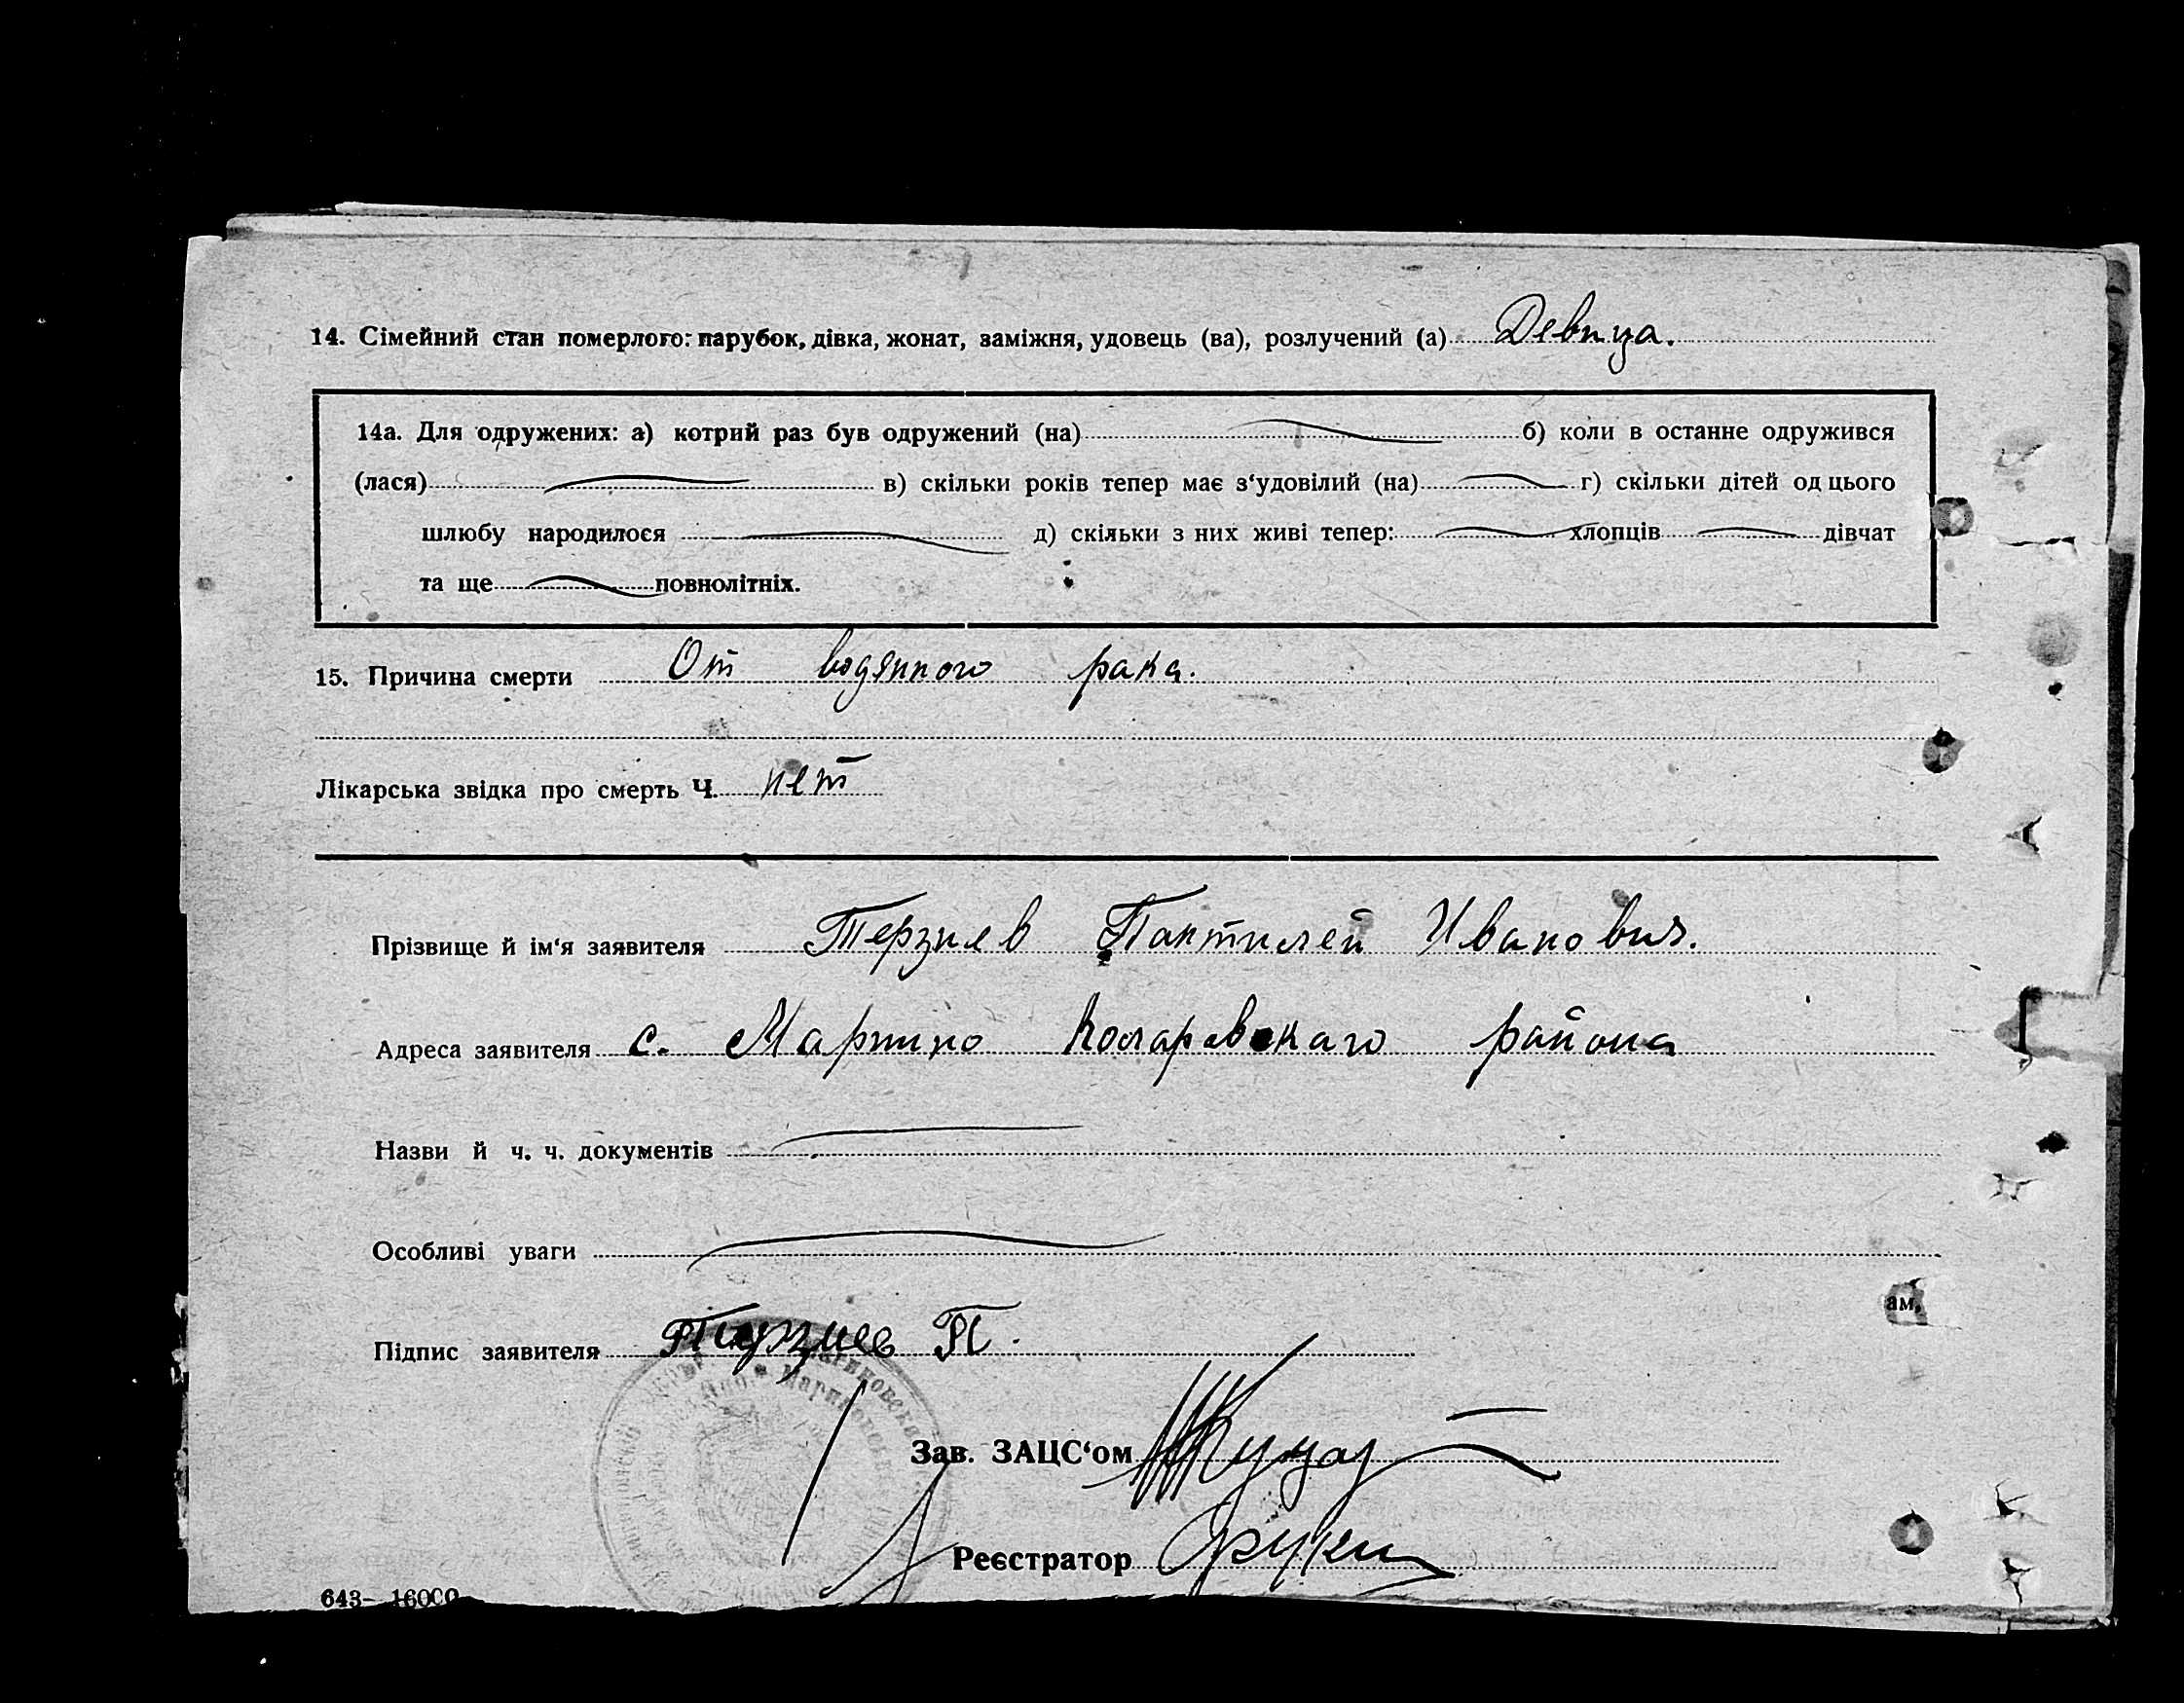 14. Сімейний стан померлого: парубок, дівка, жонат, заміжня, удовець (ва), розлучений (а) Девица.
14а. Для одружених: а) котрий раз був одружений (на) б) коли в останне одружився
(лася) в) скільки років тепер має з‘удовілий (на) г) скільки дітей од цього
шлюбу народилося д) скільки з них живі тепер: хлопців дівчат
та ще повнолітніх.
15. Причина смерти От водянного рака.
Лікарська звідка про смерть Ч. нет
Прізвище й ім‘я заявителя Терзиев Пантилей Иванович.
Адреса заявителя с. Марино Коларовскаго района
Назви й ч. ч. документів
Особливі уваги
ам,
Підпис заявителя Терзиев П.
Зав. ЗАЦС‘ом
Реєстратор
643— 16000